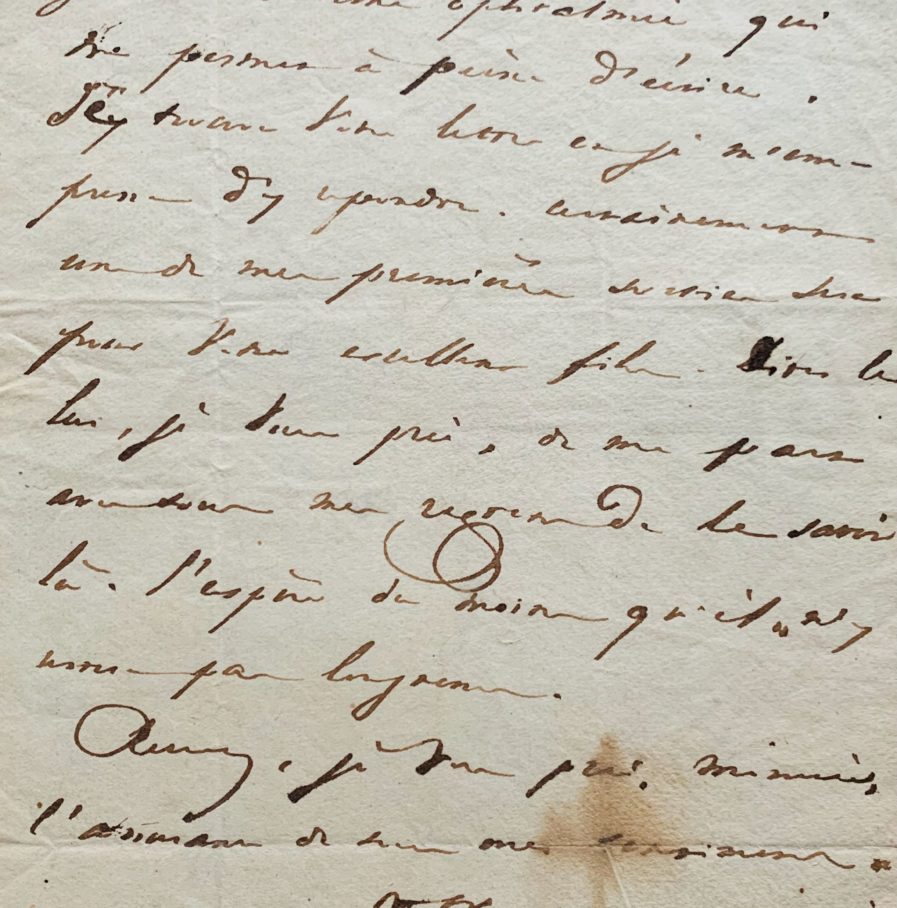 une ophtalmie qui
me permet à peine d'écrire.
J'y trouve votre lettre et je m'em-
presse d'y répondre. Certainement
une de mes premières sorties sera
pour votre excellent fils. Dites le
lui, je vous prie, de ma part
avec tous mes regrets de le savoir
là. J'espère du moins qu'il n'y
sera pas longtemps.
Recevez, je vous prie, monsieur,
l'assurance de tous mes sentiments